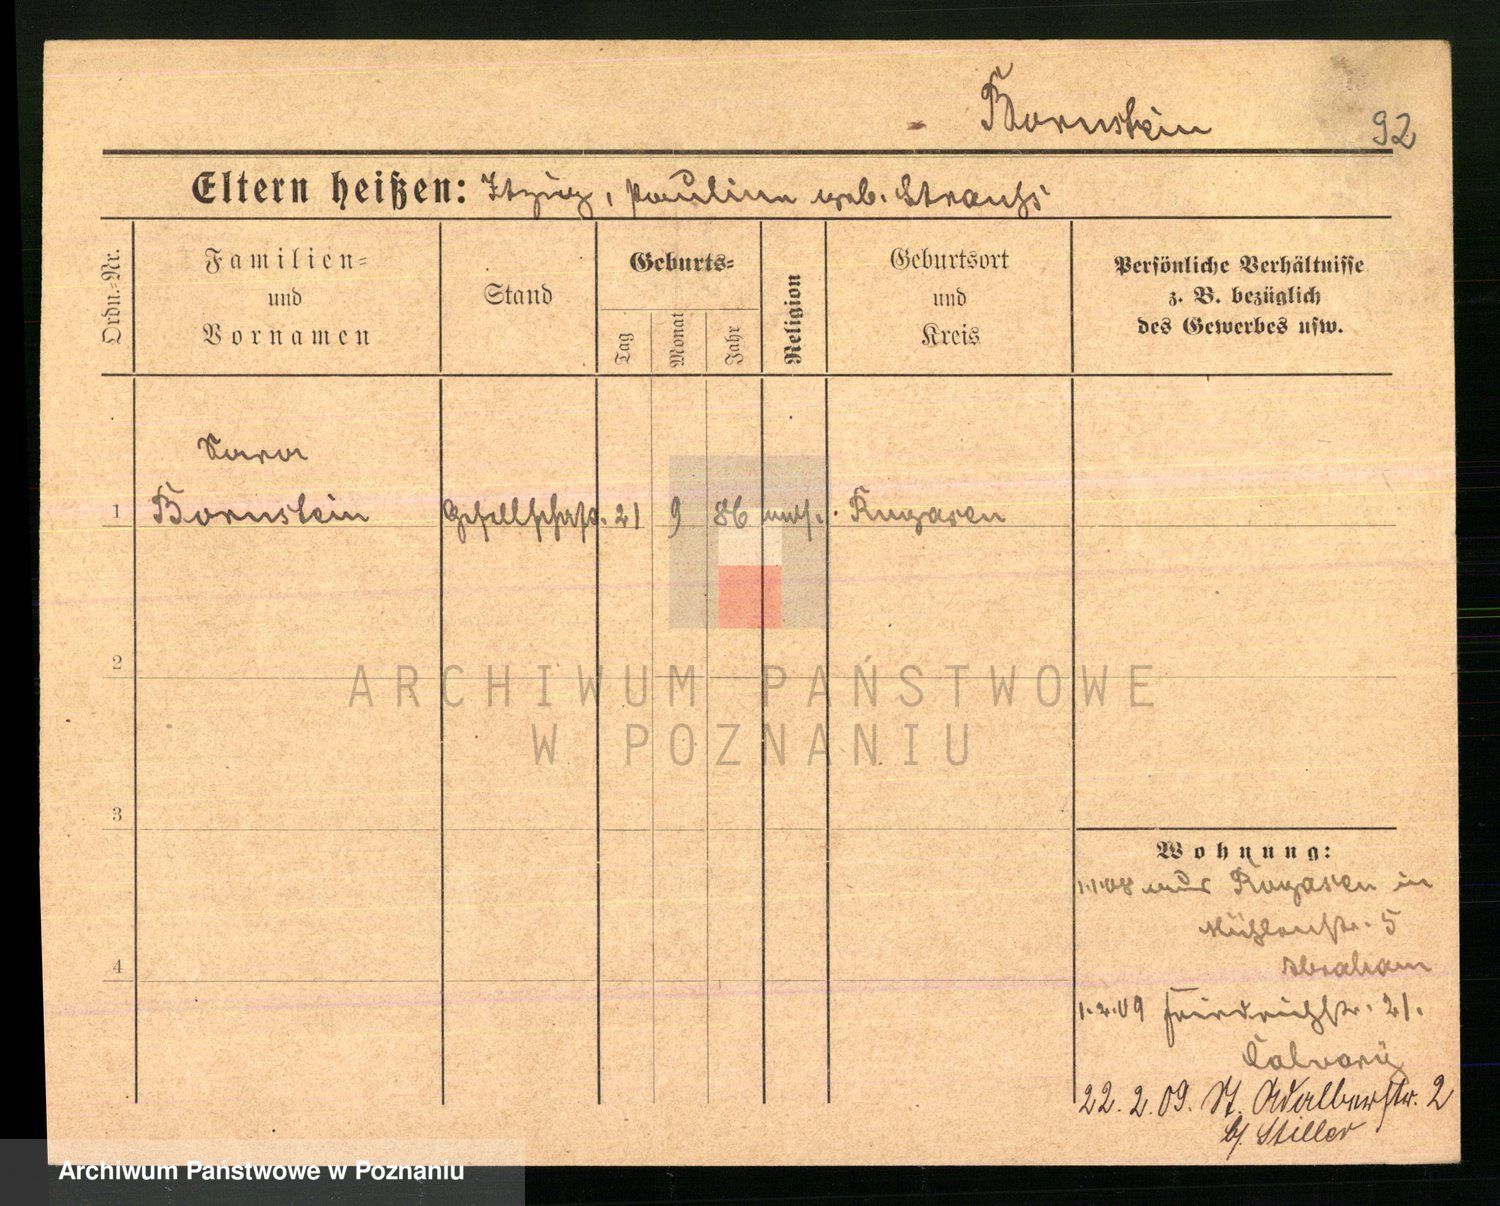 Bornstein
92
Eltern heißen: Itzig, Pauline geb. Strauhs
Ordn.-Nr.
Familien-
und
Vornamen
Stand
Geburts-
Tag
Monat
Jahr
Religion
Geburtsort
und
Kreis
Persönliche Verhältnisse
z. B. bezüglich
des Gewerbes usw.
Sara
1 Bornstein Gesellschaft. 21 9 86 mos. Rogasen
2
ARCHIWUM PAŃSTWOWE
W POZNANIU
3
Wohnung:
1.1.08 aus Rogasen in
Mühlenstr. 5
Abraham
4
1.2.09 Friedrichstr. 21.
Calvary
22.2.09. St. Adalbertstr. 2
b/ Stiller
Archiwum Państwowe w Poznaniu